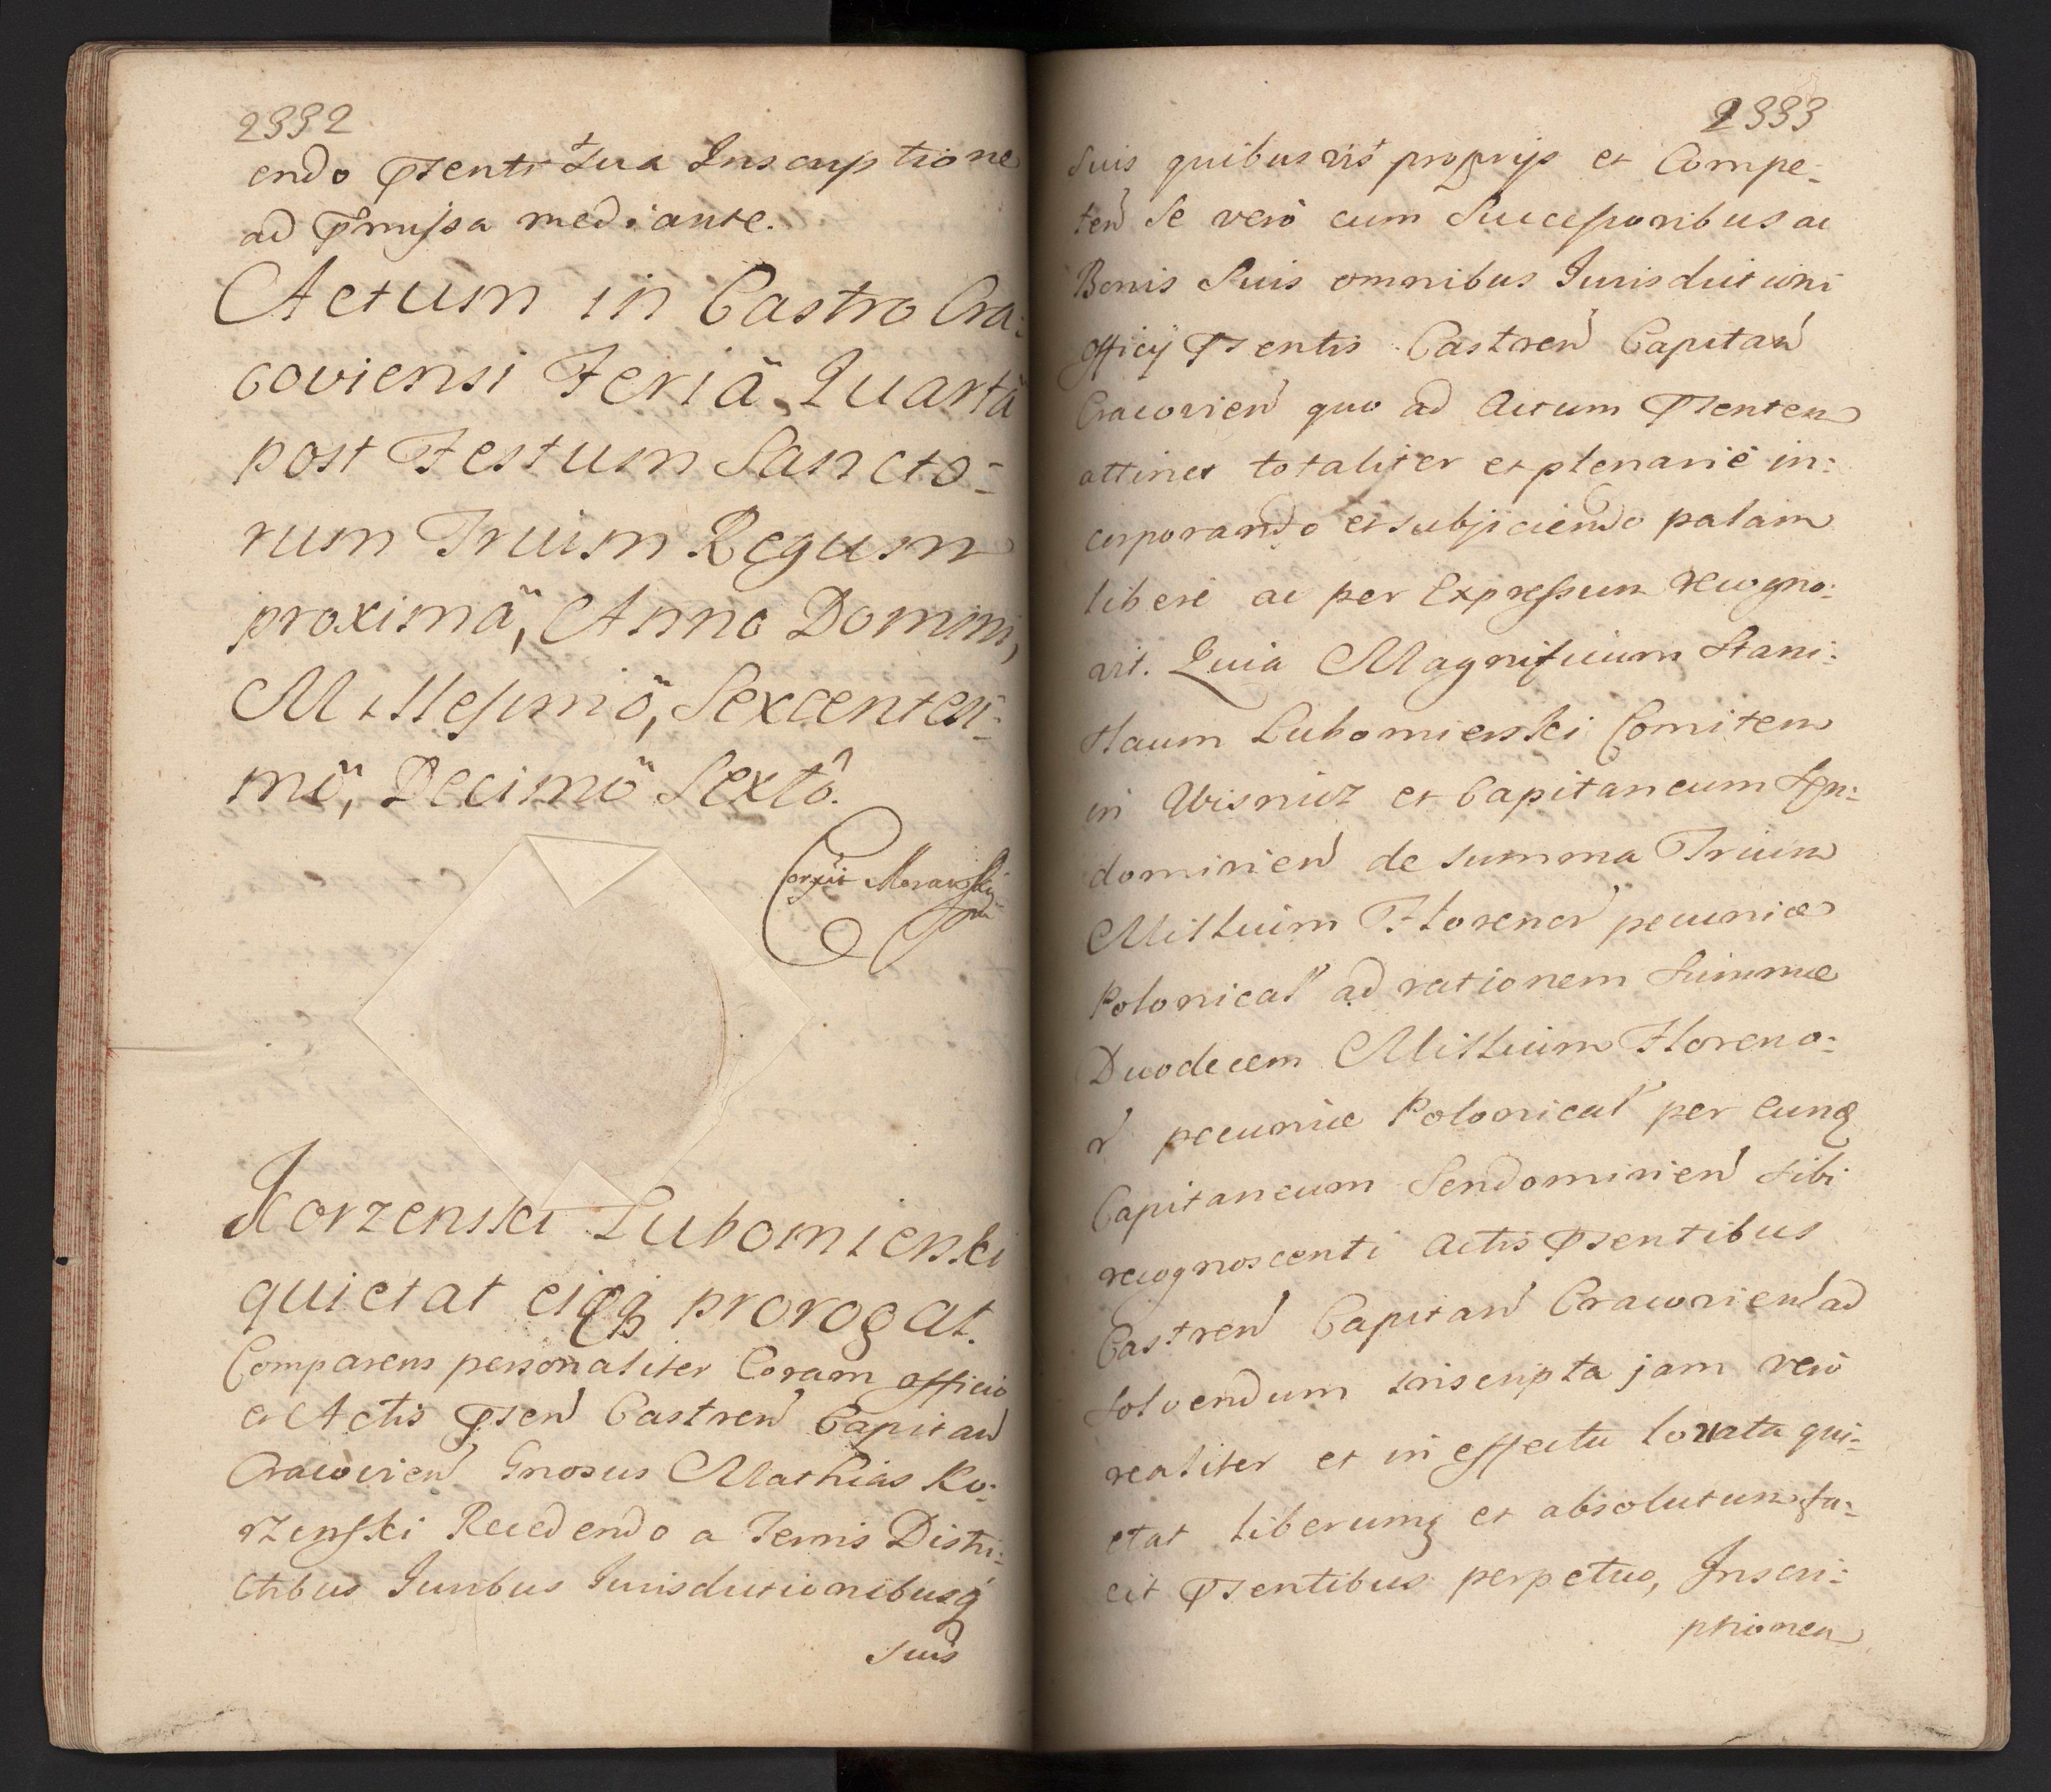 2332
endo Pſenti Sua Inscriptione
ad Pſmiſsa mediante.
Actum in Castro Cra:
coviensi Feriâ Quartâ
post Festum Sancto:
rum Trium Regum
proximâ, Anno Domini,
Milleſimô, Sexcentesi:
mô, Decimô Sextô.
Corxit Morawſki
mp
Korzenski Lubomierski
quietat eiqꝫ prorogat.
Comparens personaliter Coram officio
et Actis Pſen Castren Capitan
Cracovien Gnosus Mathias Ko:
rzenſki Recedendo a Terris Distri:
ctibus Juribus Jurisdictionibusq
suis
2333
suis quibusvis proprijs et Compe:
ten Se verò cum Succeſsoribus ac
Bonis Suis omnibus Jurisdictioni
officij Pſentis Castren Capitan
Cracovien quo ad Actum Pſentem
attinet totaliter et plenariè in:
corporando et subjiciendo palam
liberè ac per Expreſsum recogno:
vit. Quia Magnificum Stani:
slaum Lubomierski Comitem
in Wisnicz et Capitaneum Sen:
domirien de summa Trium
Millium Florenor pecuniæ
Polonical ad rationem Summæ
Duodecem Millium Floreno:
r pecuniæ Polonical per eunq
Capitaneum Sendomirien sibi
recognoscenti Actis Pſentibus
Castren Capitan Cracovien ad
solvendum inscripta jam verò
realiter et in effectu levata qui:
etat liberumqꝫ et absolutum fa:
cit Pſentibus perpetuo, Inscri:
ptionem